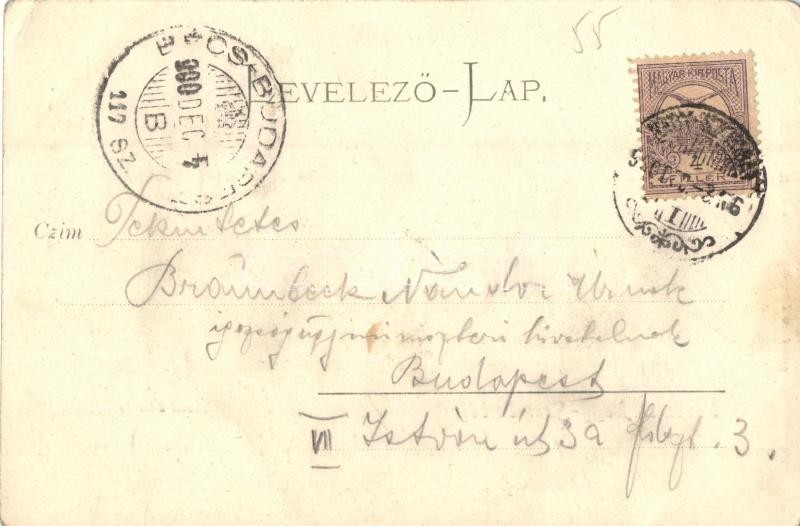 55
BÉCS-BUDAPEST
900 DEC 4
B
117 SZ
LEVELEZŐ-LAP.
MAGYAR KIR. POSTA
FILLÉR
Czim Tekintetes
Braumbeck Nándor Úrnak
igazságügyminiszteri hivatalnok
Budapest
VII István út 39 földszt. 3.